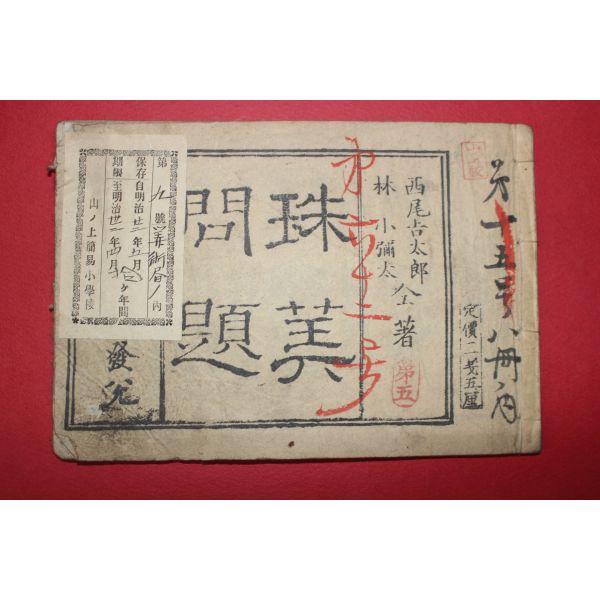 第十五号八冊ノ内
定價二錢五厘
西尾吉太郎
林小彌太
仝著
第五
珠算
問題
發兌
第九號算術書ノ内
保存自明治廿二年五月
期限至明治廿 年四月 ケ年間
山ノ上簡易小學校